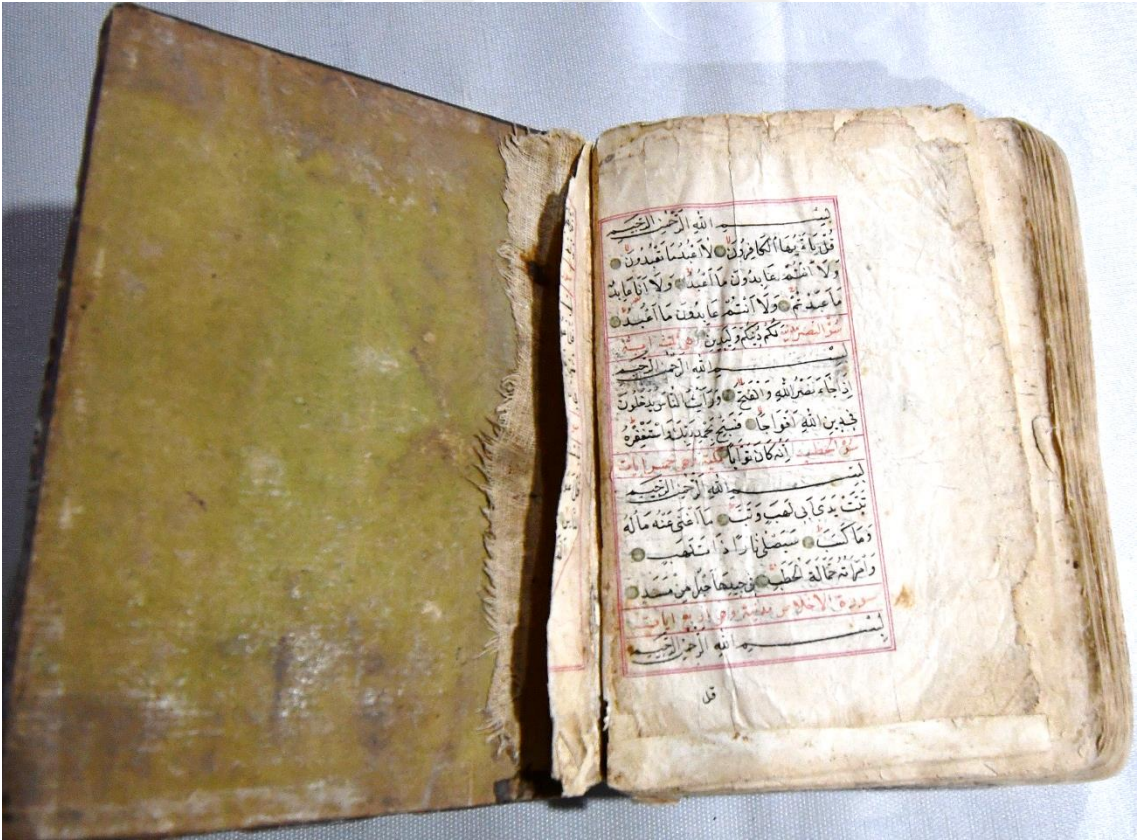 بسم الله الرحمن الرحيم
قُلْ يَا أَيُّهَا الْكَافِرُونَ لَا أَعْبُدُ مَا تَعْبُدُونَ
وَلَا أَنْتُمْ عَابِدُونَ مَا أَعْبُدُ وَلَا أَنَا عَابِدٌ
مَا عَبَدْتُمْ وَلَا أَنْتُمْ عَابِدُونَ مَا أَعْبُدُ
سورة النصر لَكُمْ دِينُكُمْ وَلِيَ دِينِ
بسم الله الرحمن الرحيم
إِذَا جَاءَ نَصْرُ اللهِ وَالْفَتْحُ وَرَأَيْتَ النَّاسَ يَدْخُلُونَ
فِي دِينِ اللهِ أَفْوَاجًا فَسَبِّحْ بِحَمْدِ رَبِّكَ وَاسْتَغْفِرْهُ
سورة الحطب إِنَّهُ كَانَ تَوَّابًا وهي خمس ايات
بسم الله الرحمن الرحيم
تَبَّتْ يَدَا أَبِي لَهَبٍ وَتَبَّ مَا أَغْنَى عَنْهُ مَالُهُ
وَمَا كَسَبَ سَيَصْلَى نَارًا ذَاتَ لَهَبٍ
وَامْرَأَتُهُ حَمَّالَةَ الْحَطَبِ فِي جِيدِهَا حَبْلٌ مِنْ مَسَدٍ
سورة الاخلاص وهي اربع ايات
بسم الله الرحمن الرحيم
قل